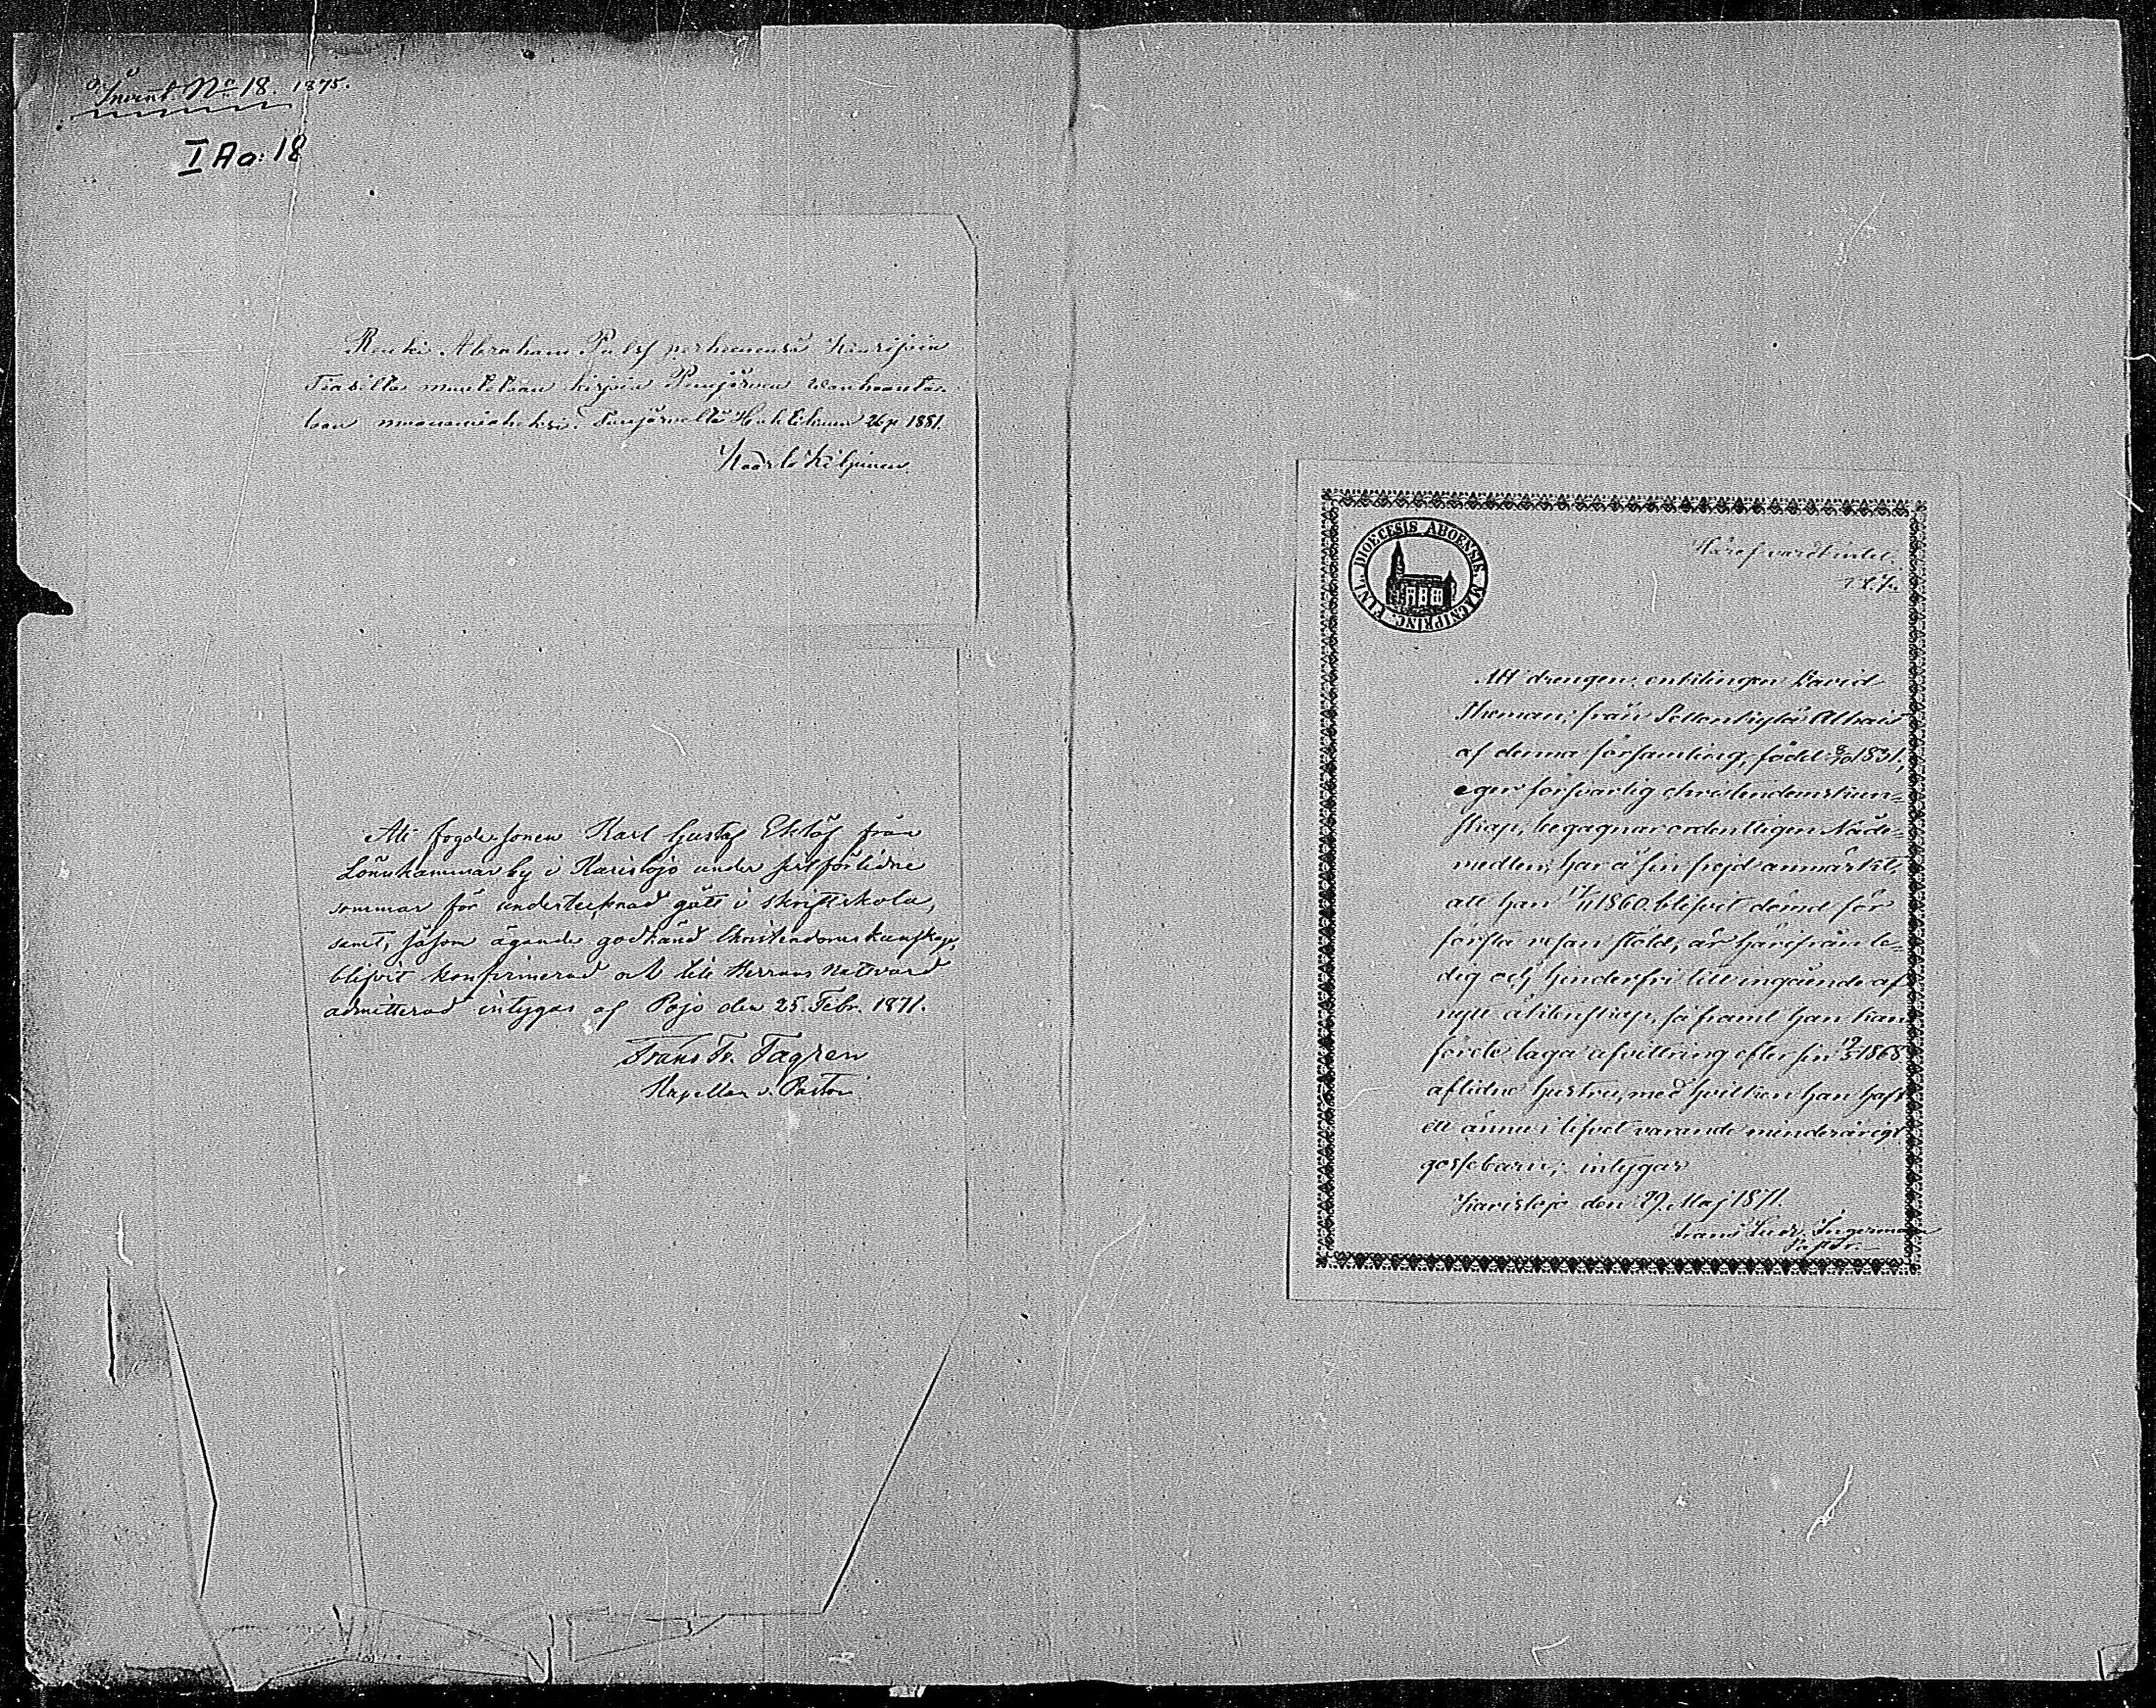 Invent. No 18. 1875.
I Aa: 18
Renki Abraham perheenensä
muutetaan kirjoin
Suujärveltä Huhtikuun 26 p 1881.
Kaarlo Kiljunen.
Att fogdesonen Karl Gustaf Eklöf från
Lönnhammar by i Karislojo under sistförlidne
sommar för undertecknad gått i skriftskola,
samt, såsom ägande godkänd Christendomskunskap,
blifvit konfirmerad och till Herrans Nattvard
admitterad intygas af Pojo den 25. Febr. 1871.
Frans Fr. Fagren
Kapellan v. Pastor
DIOECESIS ABOENSIS MAGNIPRINC. FINL.
Att drengen enklingen David
från
af denna församling, född 8/10 1831,
eger försvarlig christendomskun=
skap, begagnar ordentligen Nåde=
medlen, har å sin frejd anmärkt,
att han 1860 blifvit dömd för
första resan stöld, är härifrån le=
dig och hinderfri till ingående af
nytt äktenskap, så framt han kan
förete laga afvittring efter sin 1868
aflidne hustru, med hvilken han haft
ett ännu i lifvet varande minderårigt
gossebarn; intygar
Karislojo den 29. Maj 1871.
Frans Ludv.
Pastor.